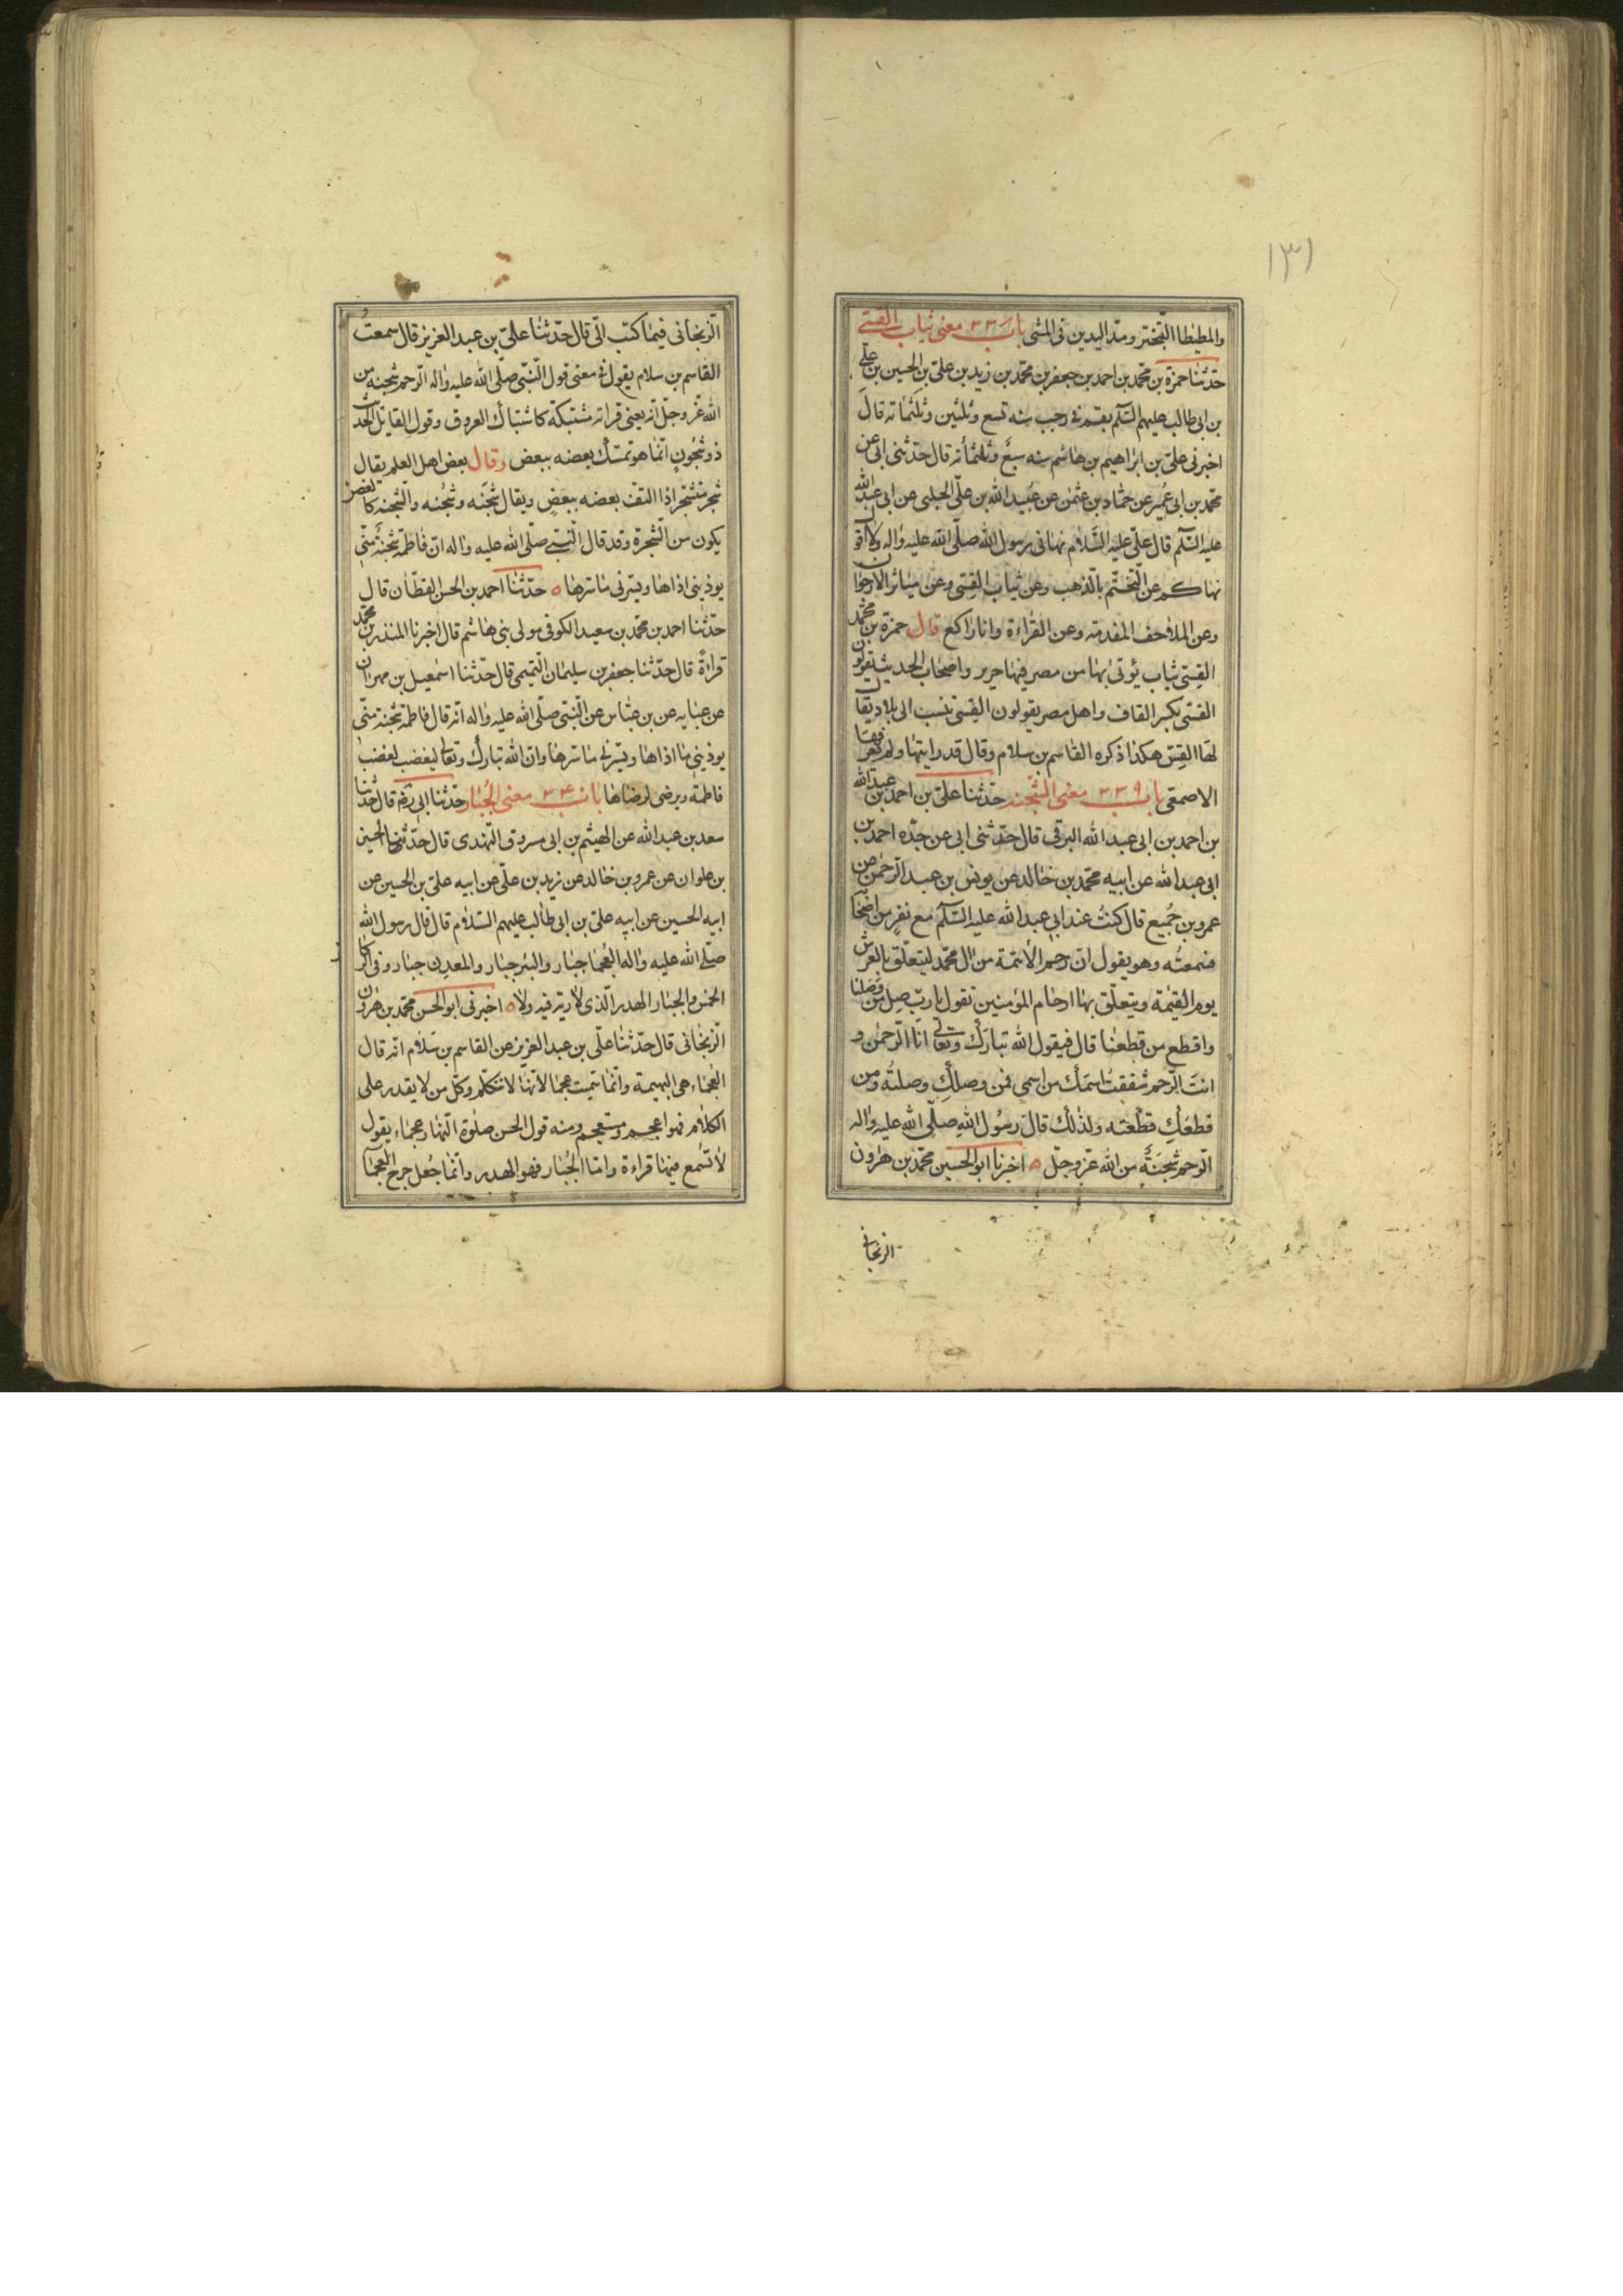 ١٣١
والمطيطا التبختر ومدّ اليدين فى المشى باب ٣٣٨ معنى ثياب القسّى
حدّثنا حمزة بن محمّد بن احمد بن جعفر بن محمّد بن زيد بن علىّ بن الحسين بن علىّ
بن ابى طالب عليهم السّلم بقم فى رجب سنه تسع وثلثين وثلثمائه قال
اخبرنى علىّ بن ابراهيم بن هاشم سنه سبع وثلثمأئه قال حدّثنى ابى عن
محمّد بن ابى عُمير عن حمّاد بن عثمن عن عُبيد الله بن علىّ الحلبى عن ابى عبد الله
عليه السّلم قال علىّ عليه السّلام نهانى رسول الله صلّى الله عليه واله ولا اقول
نهاكم عن التّختّم بالّذهب وعن ثياب القِسّى وعن مياثر الأرجوان
وعن الملاحف المفدمه وعن القراءة وانا راكع قال حمزة بن محمّد
القِسّى ثياب يؤتى بها من مصر فيها حرير واصحاب الحديث يقولون
القسّى بكسر القاف واهل مصر يقولون القَسّى تنسب الى بلاد يقال
لها القسّ هكذا ذكره القاسم بن سلام وقال قد رايتها ولم يعرفها
الاصمعى باب ٣٣٩ معنى الشّجنه حدّثنا علىّ بن احمد بن عبد الله
بن احمد بن ابى عبد الله البرقى قال حدّثنى ابى عن جدّه احمد بن
ابى عبد الله عن ابيه محمّد بن خالد عن يونس بن عبد الرّحمن عن
عمرو بن جُميع قال كنتُ عند ابى عبد الله عليه السّلم مع نفرٍ من اصحابه
فسمعتُه وهو يقول انّ رحم الأئمّة من ال محمّد ليتعلّق بالعرش
يوم القيٰمة ويتعلّق بها ارحام المؤمنين تقول يا ربّ صِل من وَصَلنا
واقطع من قطعنا قال فيقول الله تبارَك وتعالى انا الرّحمٰن و
انتَ الرّحم شققتُ اسمَك من اسمى فمن وصلكِ وصلتُه ومن
قطعَكِ قطعته ولذلك قالَ رسُول اللهِ صلّى الله عليه واله
الرّحم شجنَةٌ من الله عزّ وجلّ ه اخبرنا ابو الحسين محمّد بن هٰرون
الزنجانى
الزّنجانى فيما كتب الىّ قال حدّثنا علىّ بن عبد العزيز قال سمعتُ
القاسم بن سلام يقول فى معنى قول النّبىّ صلّى الله عليه واله الرّحم شجنه من
الله عزّ وجلّ انّه يعنى قرابة مشتبكة كاشتباك العروق وقول القايل الحديث
ذو شُجُونٍ انّما هو تمسّك بعضه ببعض وقال بعض اهل العلم يقال
شجر متشجّر اذا التفّ بعضه ببعضٍ ويقال شَجنَه وشُجنه والشّجنه كالغصن
يكون من الشّجرة وقد قال النّبىّ صلّى الله عليه واله انّ فاطمة شجنةٌ منّى
يوذينى ما اذاها ويسرّنى ما سرّها ه حدّثنا احمد بن الحسن القطّان قال
حدّثنا احمد بن محمّد بن سعيد الكوفى مولى بنى هاشم قال اخبرنا المنذر بن محمّد
قراءةً قال حدّثنا جعفر بن سليمان التّميمى قال حدّثنا اسمٰعيل بن مهران
عن عبايه عن بن عبّاس عن النّبىّ صلّى الله عليه واله انّه قال فاطمة شجنة منّى
يوذينى ما اذاها ويسرّنى ما سرّها وانّ الله تبارك وتعالى ليغضب لغضب
فاطمه ويرضى لرضاها باب ٣٤٠ معنى الجُبار حدّثنا ابى رَه قال حدّثنا
سعد بن عبد الله عن الهيثم بن ابى مسروق النّهدى قال حدّثنا الحسين
بن علوان عن عمرو بن خالد عن زيد بن علىّ عن ابيه علىّ بن الحسين عن
ابيه الحسين عن ابيه علىّ بن ابى طالب عليهم السّلام قال قال رسول الله
صلّى الله عليه واله العُجما جبار والبئر جبار والمعدن جبار وفى الرّكاز
الخمس والجبار الهدر الّذى لا دية فيه ولا ه اخبرنى ابو الحسن محمّد بن هٰرون
الزّنجانى قال حدّثنا علىّ بن عبد العزيز عن القاسم بن سلام انّه قال
العُجماء هى البهيمة وانّما سمّيت عجما لأنّها لا تتكلّم وكلّ من لا يقدر على
الكلام فهو اعجم ومستعجم ومنه قول الحسن صلٰوة النّهار عجماء يقول
لا تسُمع فيها قراءة وامّا الجُبار فهو الهدر وانّما جُعل جرح العجما